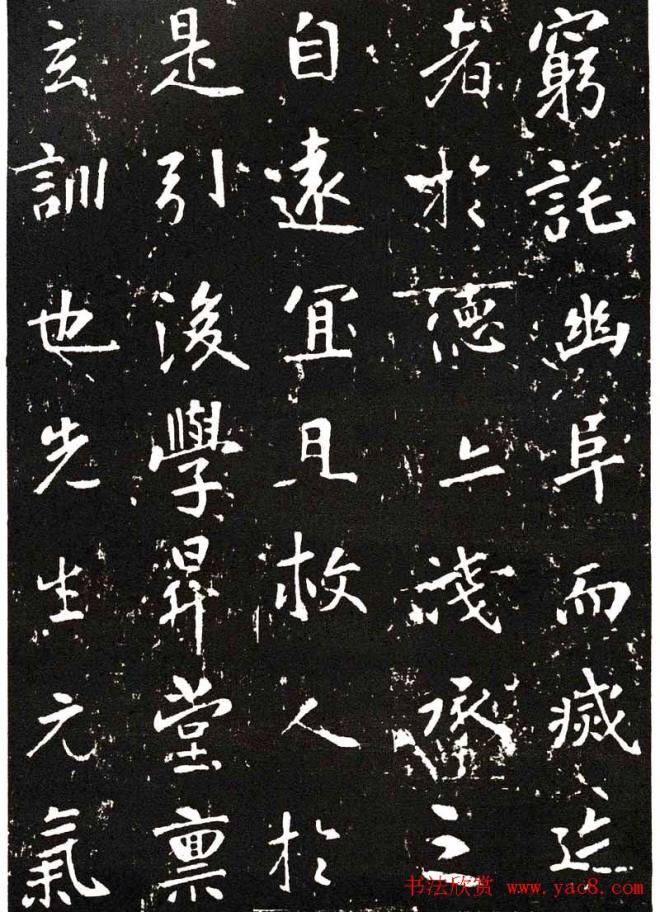 窮託幽阜而滅迹
者於德上淺承之
自遠宜且救人於
是引後學昇堂稟
玄訓也先生元氣
书法欣赏 www.yac8.com